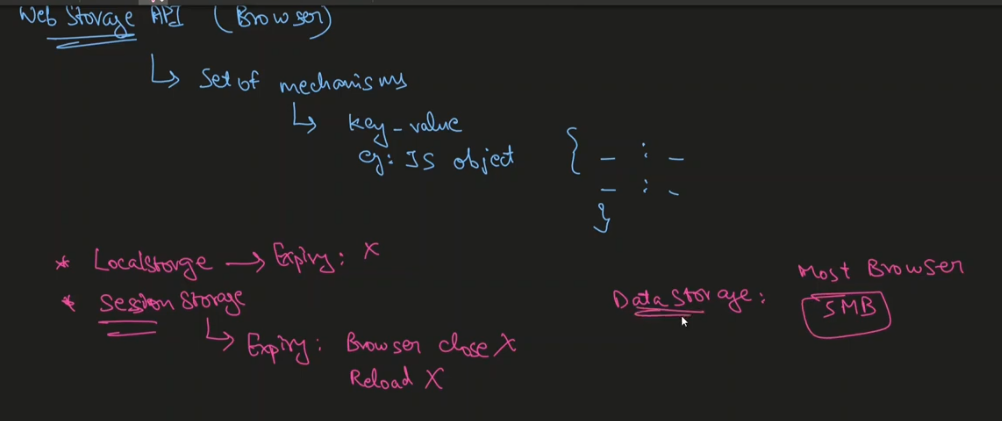 Web Storage API (Browser)
↳ Set of mechanisms
↳ key-value
eg: JS object { _ : _
_ : _
}
* LocalStorge → Expiry: X
* Session Storage
↳ Expiry: Browser close X
Reload X
Data Storage:
Most Browser
5MB